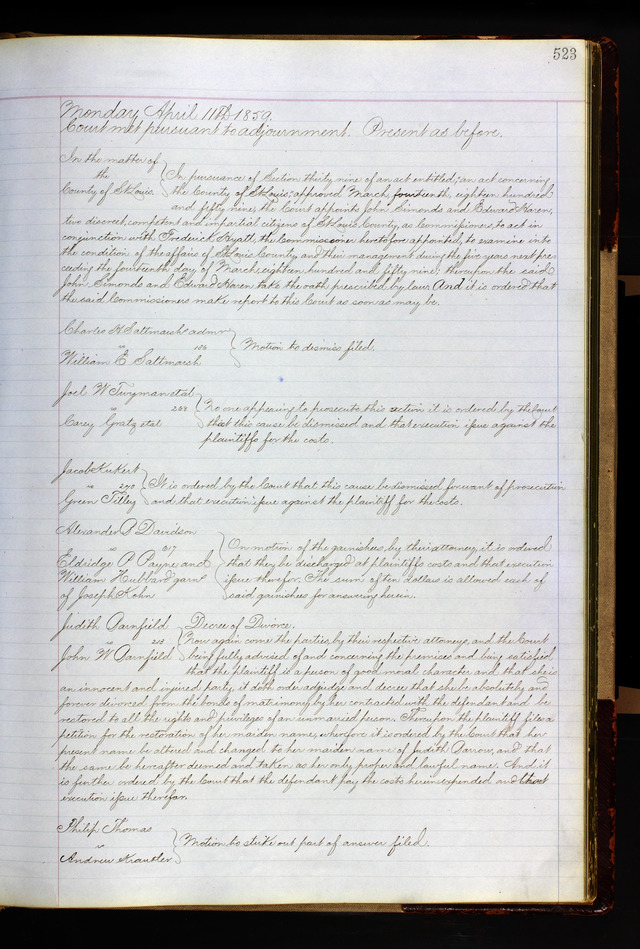 523
Monday April 11th 1859.
Court met pursuant to adjournment. Present as before.
In the matter of
the
County of St Louis
In pursuance of Section thirty nine of an act entitled; an act concerning
the County of St Louis; approved March, fourteenth, eighteen hundred
and fifty nine, the Court appoints John Simonds and Edward Haren,
two discreet, competent and impartial citizens of St Louis County, as Commissioners, to act in
conjunction with Frederick Hyatt, the Commissioner heretofore appointed, to examine into
the condition of the affairs of St Louis County and their management during the five years next pre-
ceeding the fourteenth day of March, eighteen hundred and fifty nine; thereupon the said
John Simonds and Edward Haren take the oath prescribed by law. And it is ordered that
the said Commissioners make report to this Court as soon as may be.
Charles H Saltmarsh admr
vs 156
William E Saltmarsh
Motion to dismiss filed.
Joel W Twyman et al
vs 208
Carey Gratz et al
No one appearing to prosecute this section it is ordered by the Court
that this cause be dismissed and that execution issue against the
plaintiffs for the costs.
Jacob Kukert
vs 290
Green Tilley
It is ordered by the Court that this cause be dismissed for want of prosecution
and that execution issue against the plaintiff for the costs.
Alexander P Davidson
vs 317
Eldridge P Payne and
William Hubbard garns
of Joseph Kohn
On motion of the garnishees by their attorney, it is ordered
that they be discharged at plaintiffs costs and that execution
issue therefor. The sum of ten dollars is allowed each of
said garnishees for answering herein.
Judith Parnfield
vs 213
John W Parnfield
Decree of Divorce.
Now again come the parties, by their respective attorneys, and the Court
being fully advised of and concerning the premises and being satisfied
that the plaintiff is a person of good moral character and that she is
an innocent and injured party, it doth order adjudge and decree that she be absolutely and
forever divorced from the bonds of matrimony by her contracted with the defendant and be
restored to all the rights and privileges of an unmarried person. Thereupon the plaintiff files a
petition for the restoration of her maiden name, wherefore it is ordered by the Court that her
present name be altered and changed to her maiden name of Judith Parrow, and that
the same be hereafter deemed and taken as her only proper and lawful name. And it
is further ordered by the Court that the defendant pay the costs herein expended and that
execution issue therefor.
Philip Thomas
vs
Andrew Krautler
Motion to strike out part of answer filed.